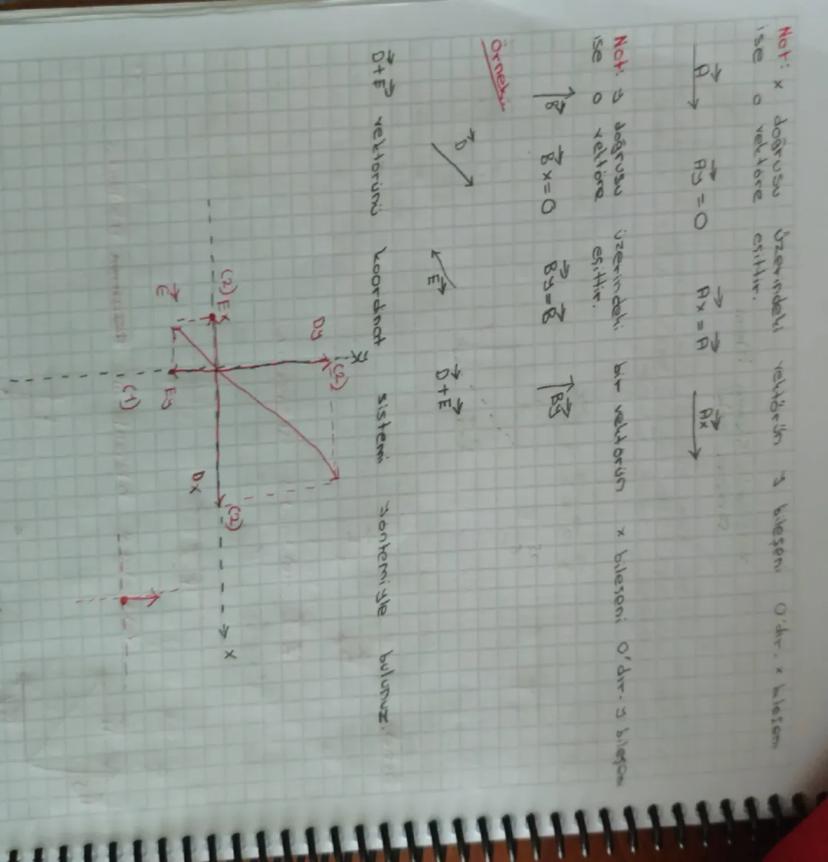 Not: x doğrusu üzerindeki vektörün y bileşeni 0'dır. x bileşeni
ise o vektöre eşittir.
A⃗ A⃗y = 0 A⃗x = A⃗ A⃗x
Not: y doğrusu üzerindeki bir vektörün x bileşeni 0'dır. y bileşen
ise o vektöre eşittir.
B⃗ B⃗x = 0 B⃗y = B⃗ B⃗y
Örnek:
D⃗ E⃗ D⃗+E⃗
D⃗+E⃗ vektörünü koordinat sistemi yöntemiyle bulunuz.
y
Dy (2)
(2) Ex
Dx (3)
x
E⃗
Ey
(1)